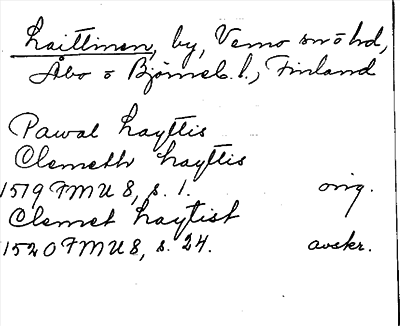 Laittinen, by, Vemo sn o hd,
Åbo o Björneb. l., Finland
Pawal Layttis
Clemeth Layttis
1519 FMU 8, s. 1. orig.
Clemet Laytist
1520 FMU 8, s. 24. avskr.